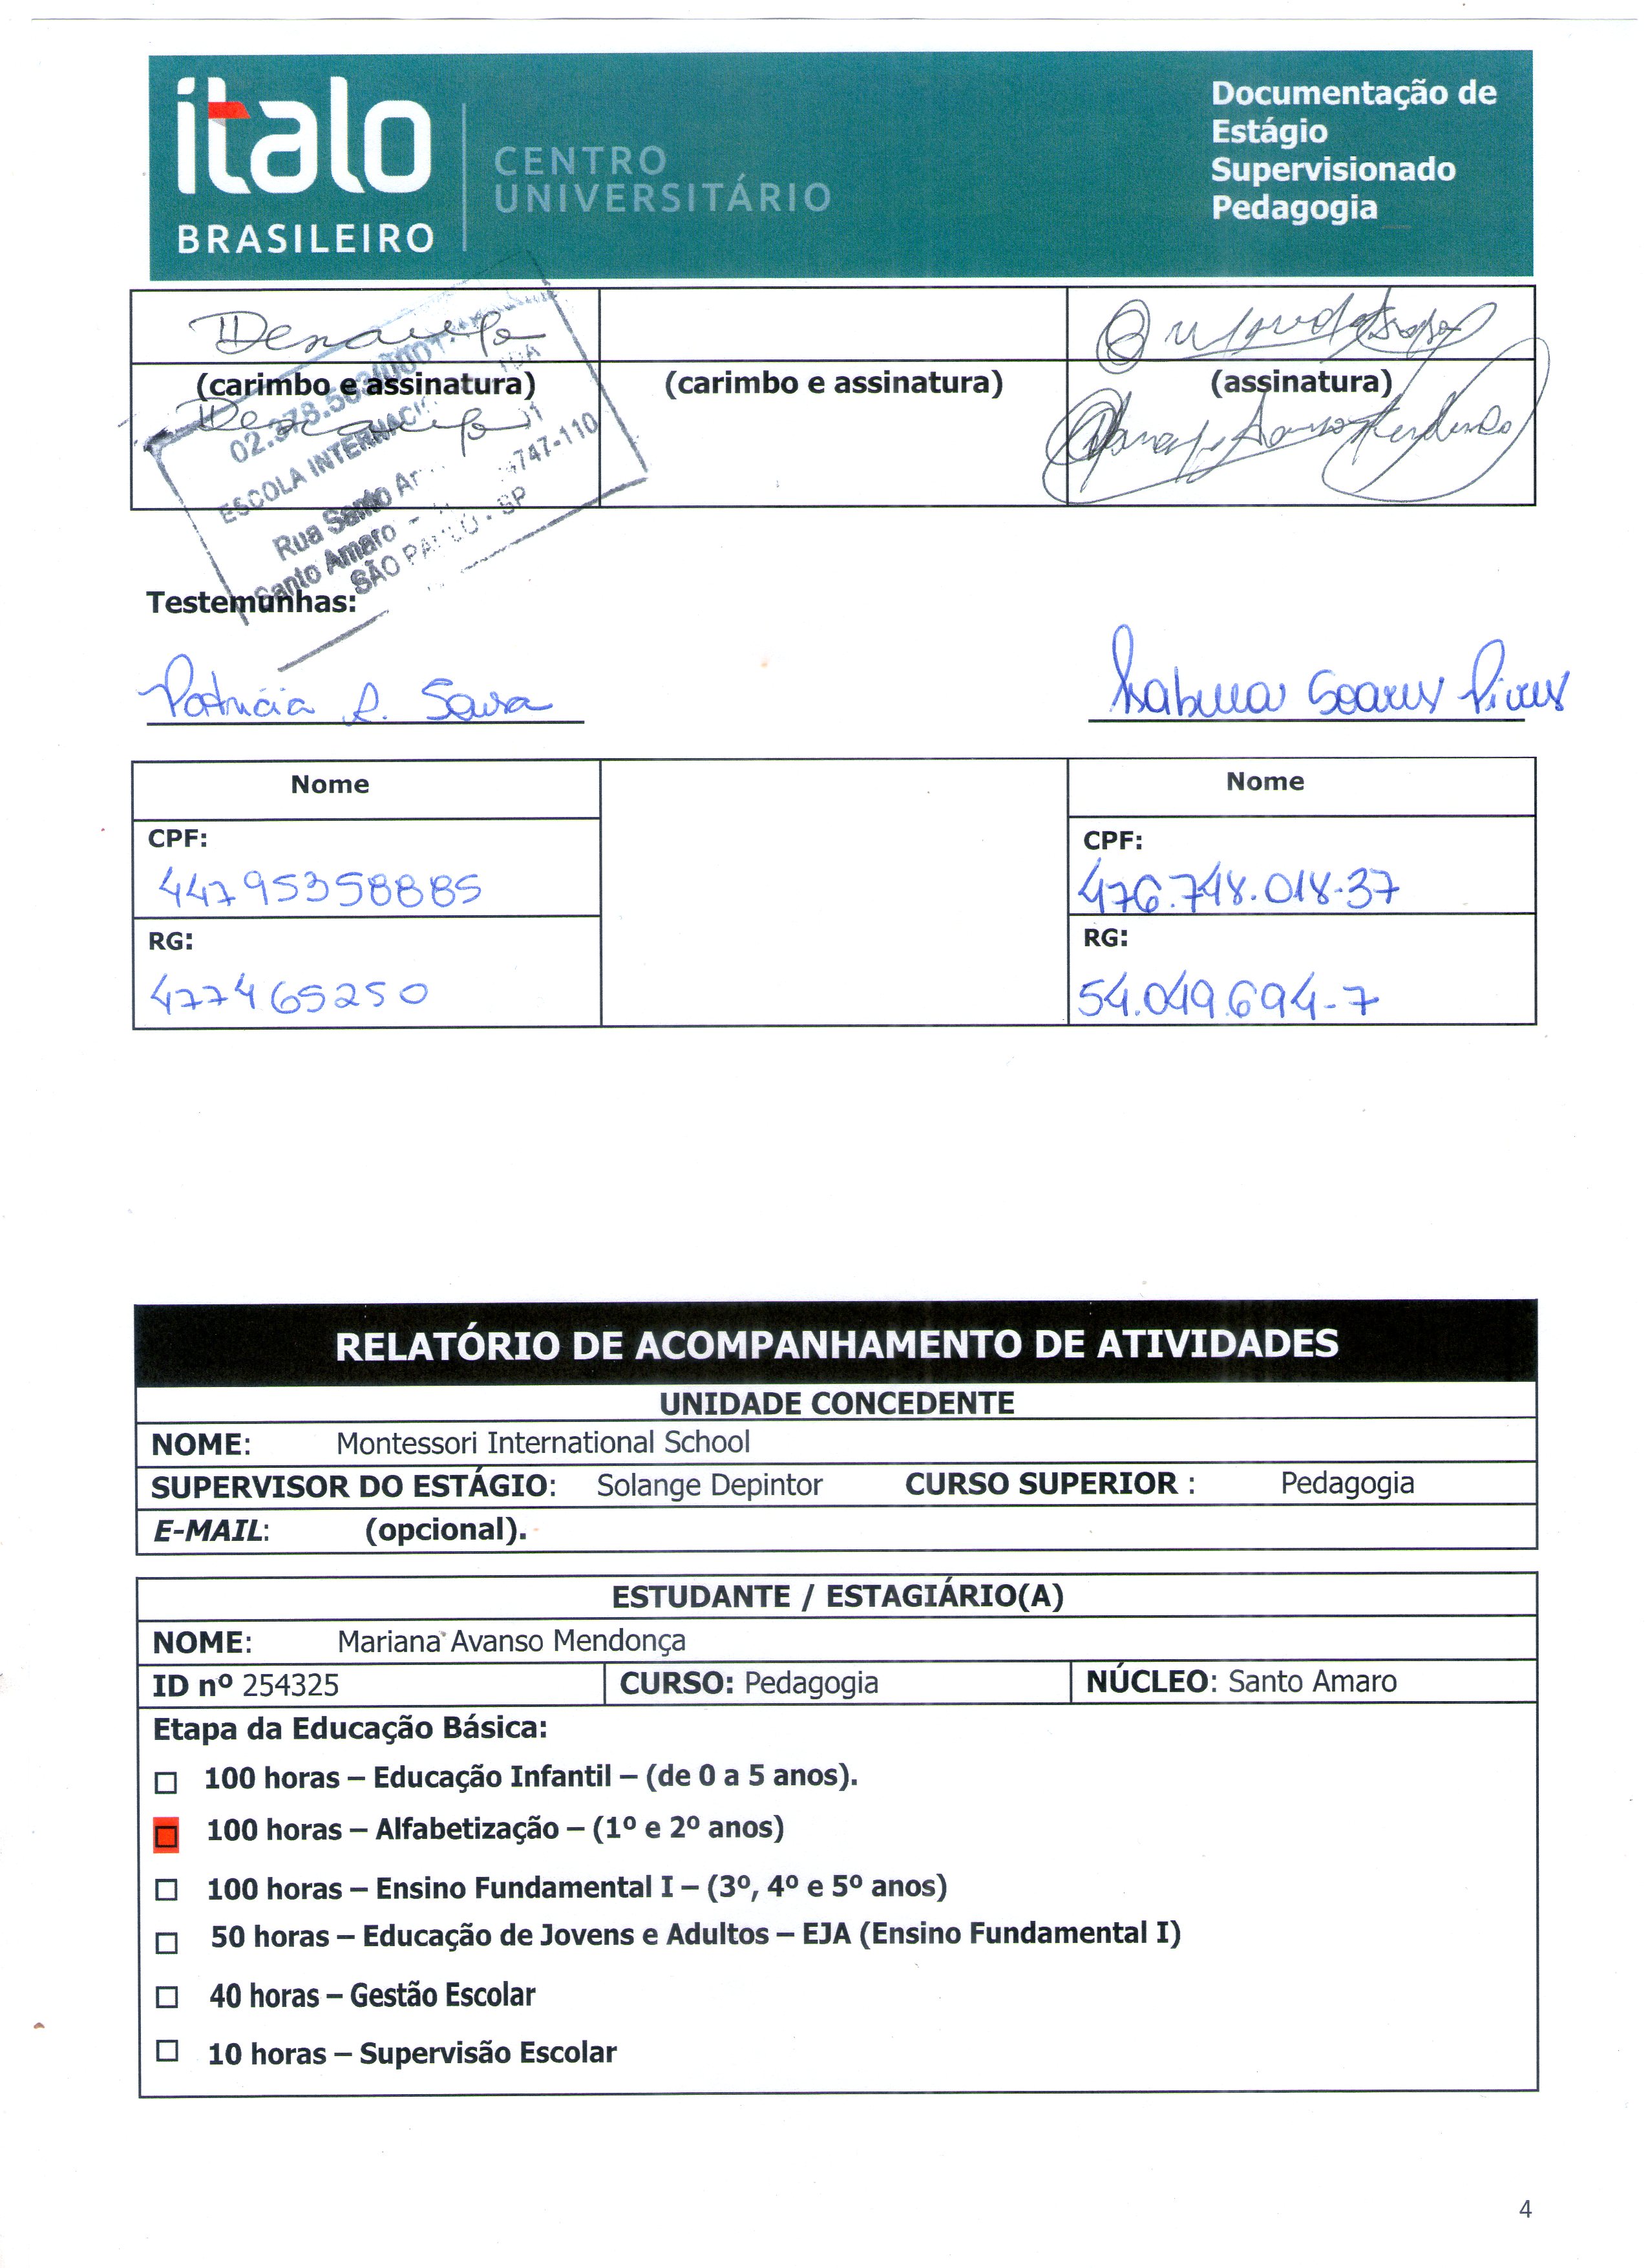 italo
BRASILEIRO
CENTRO
UNIVERSITÁRIO
Documentação de
Estágio
Supervisionado
Pedagogia
(carimbo e assinatura)
(carimbo e assinatura)
(assinatura)
02.378.503/0001
ESCOLA INTERNACI
Rua Santo
Santo Amaro
747-110
SÃO PAULO - SP
Testemunhas:
Patricia R. Sousa
Isabella Soares Pires
Nome
CPF:
44795358885
RG:
477465250
Nome
CPF:
476.748.018-37
RG:
54.049.694-7
RELATÓRIO DE ACOMPANHAMENTO DE ATIVIDADES
UNIDADE CONCEDENTE
NOME: Montessori International School
SUPERVISOR DO ESTÁGIO: Solange Depintor CURSO SUPERIOR : Pedagogia
E-MAIL: (opcional).
ESTUDANTE / ESTAGIÁRIO(A)
NOME: Mariana Avanso Mendonça
ID nº 254325 CURSO: Pedagogia NÚCLEO: Santo Amaro
Etapa da Educação Básica:
100 horas – Educação Infantil – (de 0 a 5 anos).
100 horas – Alfabetização – (1º e 2º anos)
100 horas – Ensino Fundamental I – (3º, 4º e 5º anos)
50 horas – Educação de Jovens e Adultos – EJA (Ensino Fundamental I)
40 horas – Gestão Escolar
10 horas – Supervisão Escolar
4